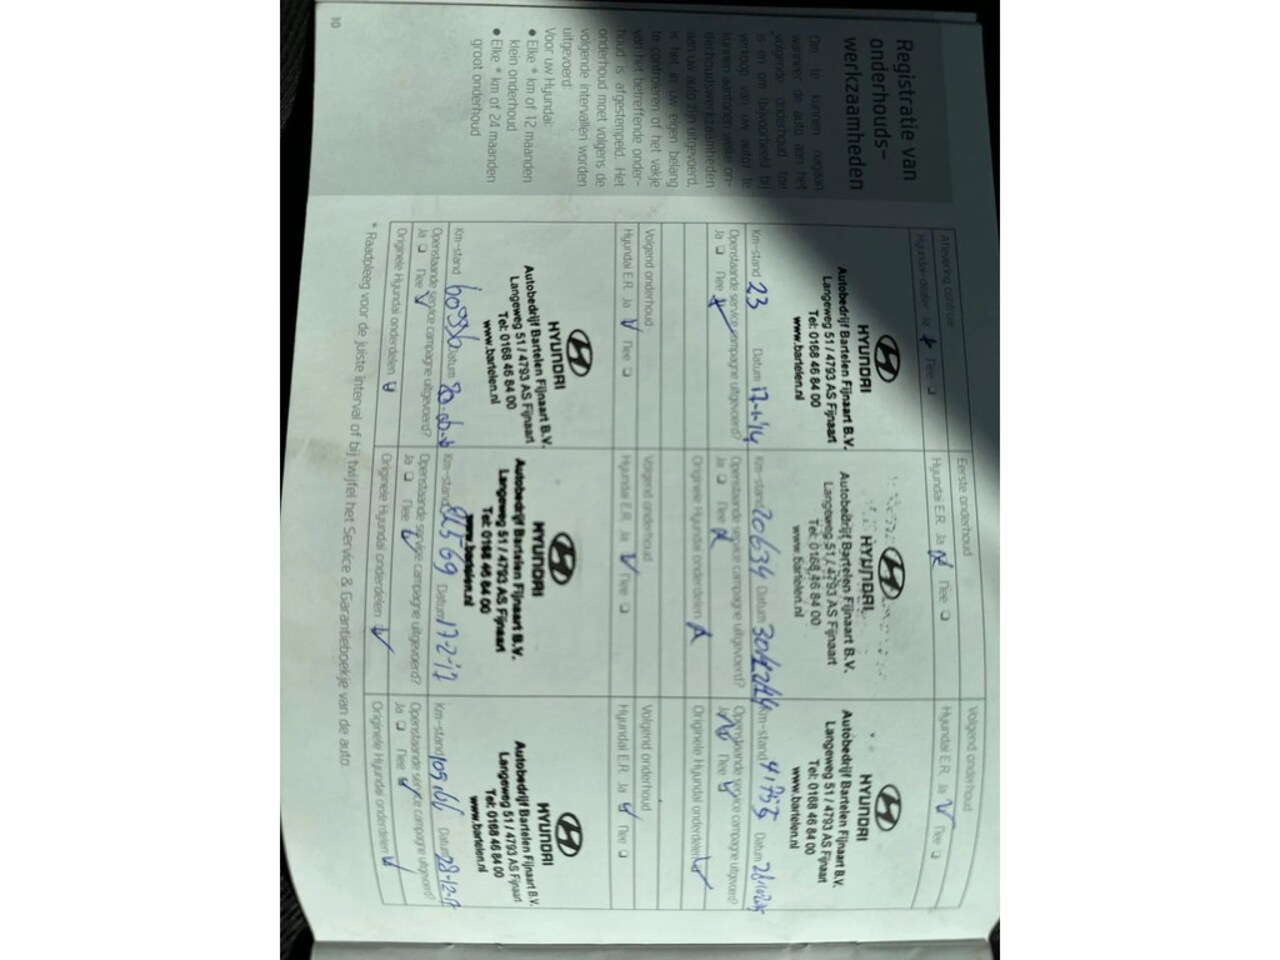 Registratie van
onderhouds-
werkzaamheden
Om te kunnen nagaan
wanneer de auto aan het
volgende onderhoud toe
is en om (bijvoorbeeld bij
verkoop van uw auto) te
kunnen aantonen welke on-
derhoudswerkzaamheden
aan uw auto zijn uitgevoerd,
is het in uw eigen belang
te controleren of het vakje
van het betreffende onder-
houd is afgestempeld. Het
onderhoud moet volgens de
volgende intervallen worden
uitgevoerd:
Voor uw Hyundai:
• Elke * km of 12 maanden
klein onderhoud
• Elke * km of 24 maanden
groot onderhoud
10
Aflevering controle
Hyundai-dealer Ja Nee
HYUNDAI
Autobedrijf Bartelen Fijnaart B.V.
Langeweg 51 / 4793 AS Fijnaart
Tel: 0168 46 84 00
www.bartelen.nl
Km-stand 23 Datum 17-1-'14
Openstaande service campagne uitgevoerd?
Ja Nee
Eerste onderhoud
Hyundai E.R. Ja Nee
HYUNDAI
Autobedrijf Bartelen Fijnaart B.V.
Langeweg 51 / 4793 AS Fijnaart
Tel: 0168 46 84 00
www.bartelen.nl
Km-stand 20634 Datum
Openstaande service campagne uitgevoerd?
Ja Nee
Originele Hyundai onderdelen
Volgend onderhoud
Hyundai E.R. Ja Nee
HYUNDAI
Autobedrijf Bartelen Fijnaart B.V.
Langeweg 51 / 4793 AS Fijnaart
Tel: 0168 46 84 00
www.bartelen.nl
Km-stand 41755 Datum
Openstaande service campagne uitgevoerd?
Ja Nee
Originele Hyundai onderdelen
Volgend onderhoud
Hyundai E.R. Ja Nee
HYUNDAI
Autobedrijf Bartelen Fijnaart B.V.
Langeweg 51 / 4793 AS Fijnaart
Tel: 0168 46 84 00
www.bartelen.nl
Km-stand Datum
Openstaande service campagne uitgevoerd?
Ja Nee
Originele Hyundai onderdelen
Volgend onderhoud
Hyundai E.R. Ja Nee
HYUNDAI
Autobedrijf Bartelen Fijnaart B.V.
Langeweg 51 / 4793 AS Fijnaart
Tel: 0168 46 84 00
www.bartelen.nl
Km-stand 82569 Datum 17-2-'17
Openstaande service campagne uitgevoerd?
Ja Nee
Originele Hyundai onderdelen
Volgend onderhoud
Hyundai E.R. Ja Nee
HYUNDAI
Autobedrijf Bartelen Fijnaart B.V.
Langeweg 51 / 4793 AS Fijnaart
Tel: 0168 46 84 00
www.bartelen.nl
Km-stand Datum 28-12-17
Openstaande service campagne uitgevoerd?
Ja Nee
Originele Hyundai onderdelen
* Raadpleeg voor de juiste interval of bij twijfel het Service & Garantieboekje van de auto